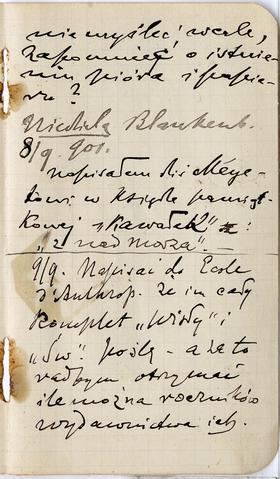 nie myśleć wcale,
zapomnieć o istnie-
niu pióra i papie-
ru?
Niedziela Blankenb.
8/9. 901.
napisałem dla Meye-
rowi w księdze pamiąt-
kowej "kawałek":
"z nad morza".
9/9. Napisać do Ecole
d'Anthrop. że im cały
komplet "Wisły" i
"Św." poślę - a za to
radbym otrzymać
ile można roczników
wydawnictwa ich.